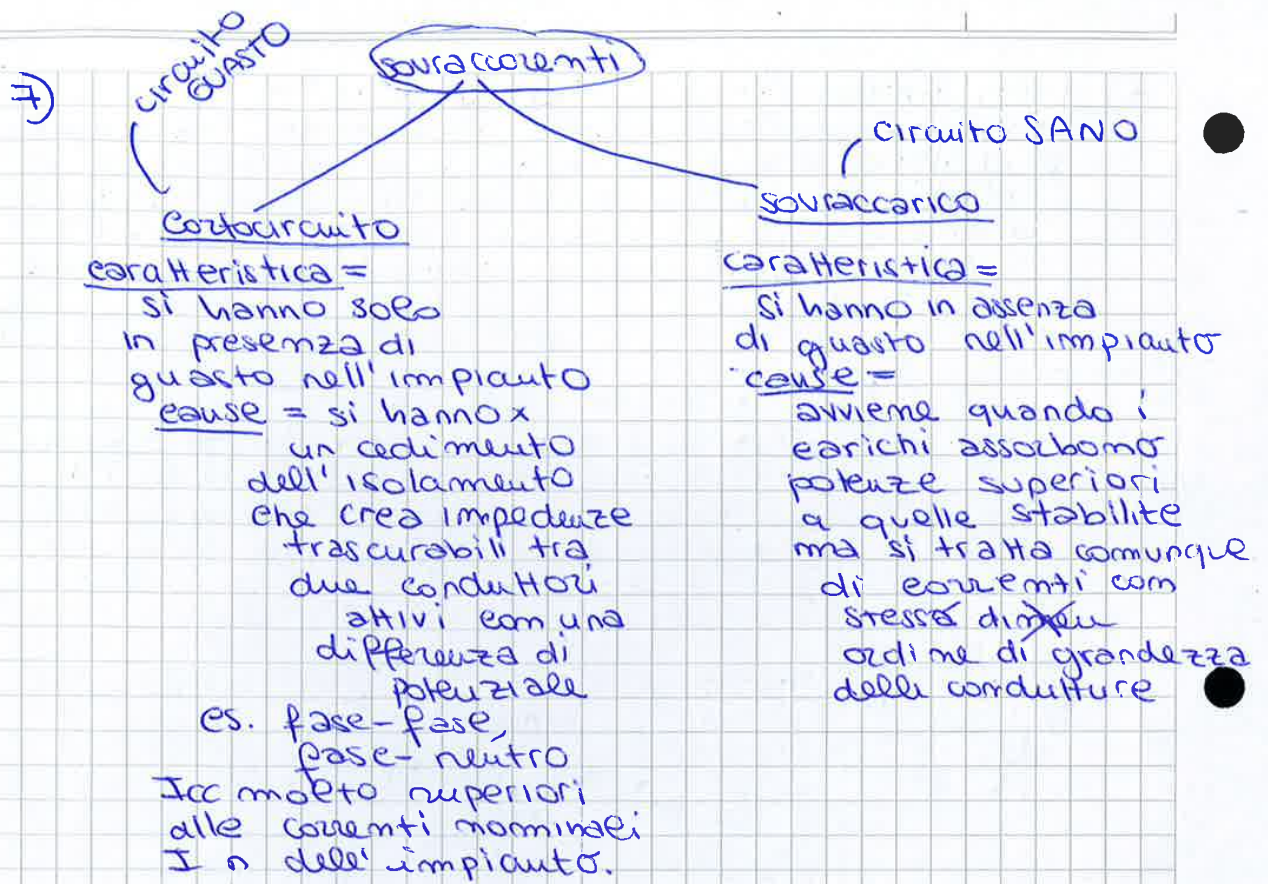 7)
circuito
GUASTO
sovraccorenti
circuito SANO
Cortocircuito
caratteristica =
si hanno solo
in presenza di
guasto nell'impianto
cause = si hanno x
un cedimento
dell'isolamento
che crea impedenze
trascurabili tra
due conduttori
attivi con una
differenza di
potenziale
es. fase-fase,
fase-neutro
Icc molto superiori
alle correnti nominali
In dell'impianto.
sovraccarico
caratteristica =
si hanno in assenza
di guasto nell'impianto
cause =
avviene quando i
carichi assorbono
potenze superiori
a quelle stabilite
ma si tratta comunque
di correnti con
stesso
ordine di grandezza
delle condutture